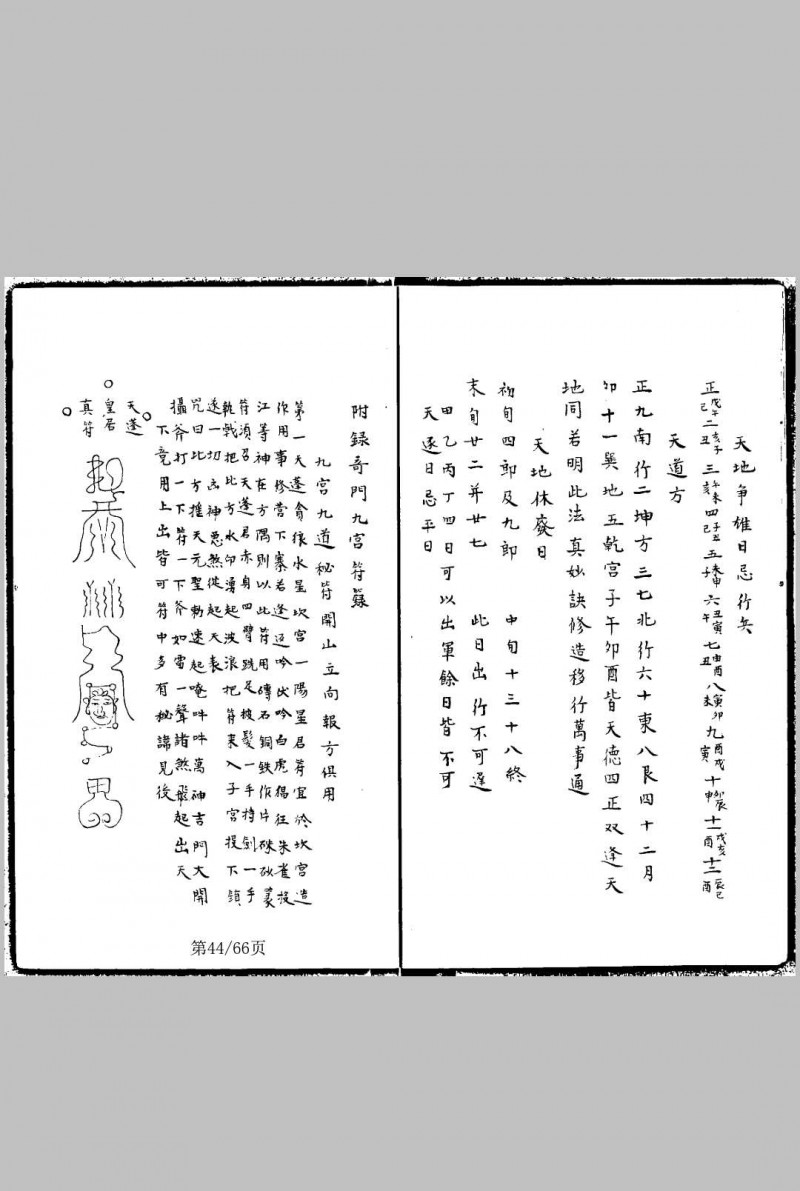 天地争雄日忌行兵
正戊午己丑二亥子三午未亥四子丑己五未申子六丑寅午七申酉丑八寅卯未九酉戌寅十卯辰申十一戌亥酉十二辰巳酉
天道方
正九南行二坤方三七北行六十東八艮四十二月
卯十一巽地五乾宮子午卯酉皆天德四正双逢天
地同若明此法真妙訣修造移行萬事通
天地休廢日
初旬四郎及九郎 中旬十三十八終
末旬廿二并廿七 此日出行不可逢
甲乙丙丁四日可以出軍餘日皆不可
天逐日忌平日
附錄奇門九宮符籙
九宮九道秘符開山立向報方俱用
第一天蓬貪狼水星坎宮一陽星君符宜於坎宮造
作用事修营下寨若逢返吟伏吟白虎猖狂朱雀投
江等神在方隅則以此符用磚石銅鉄作片硃砂篆
符須召天蓬君赤身四臂跣足披髮一手持劍一手
執戟把北方水印湧起波浪把符来入子宮投下鎮
遂一切凶神惡煞従起天表
咒曰北方推天元聖勅速起唵吽吽萬神吉門大開
攝斧打一下符一下斧如雷一聲諸煞飛起出天
下竟用上出皆可符中多有秘諱見後
天蓬
皇君
真符
第44/66页